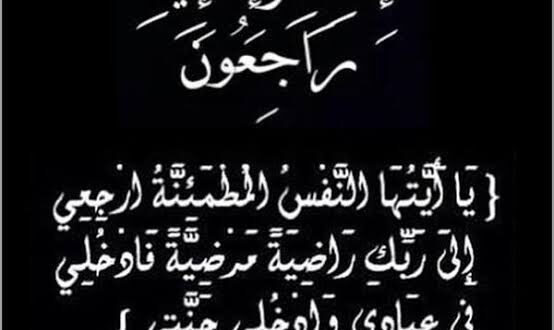 رَاجِعُونَ
{ يَا أَيَّتُهَا النَّفْسُ الْمُطْمَئِنَّةُ ارْجِعِي
إِلَى رَبِّكِ رَاضِيَةً مَرْضِيَّةً فَادْخُلِي
فِي عِبَادِي وَادْخُلِي جَنَّتِي }